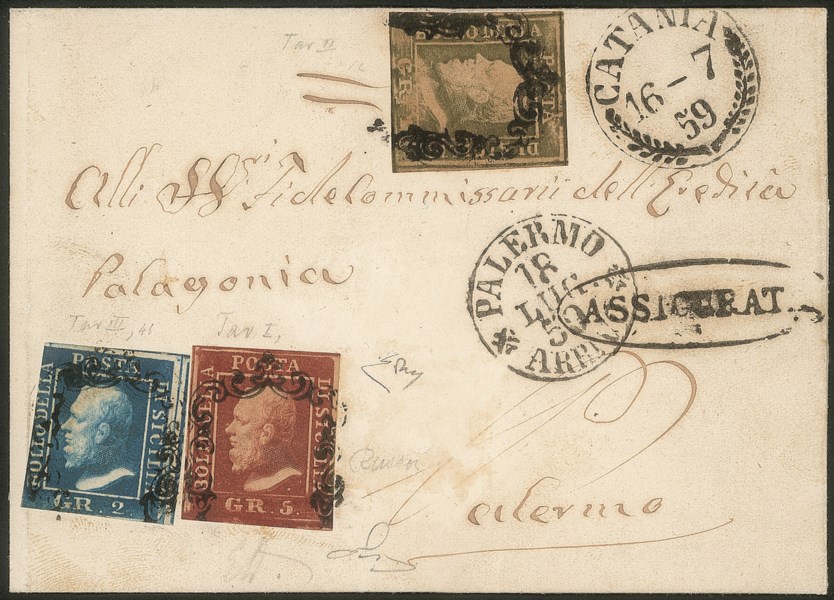 Tav II
BOLLO DELLA POSTA DI SICILIA
GR.
CATANIA
16 - 7
59
Alli SS.ri Fidelommissarii dell'Eredità
Palagonia
PALERMO
18
LUG.
ARR
ASSICURAT.
Tav III, 46
Tav. I,
BOLLO DELLA POSTA DI SICILIA
GR. 2
BOLLO DELLA POSTA DI SICILIA
GR. 5.
Palermo